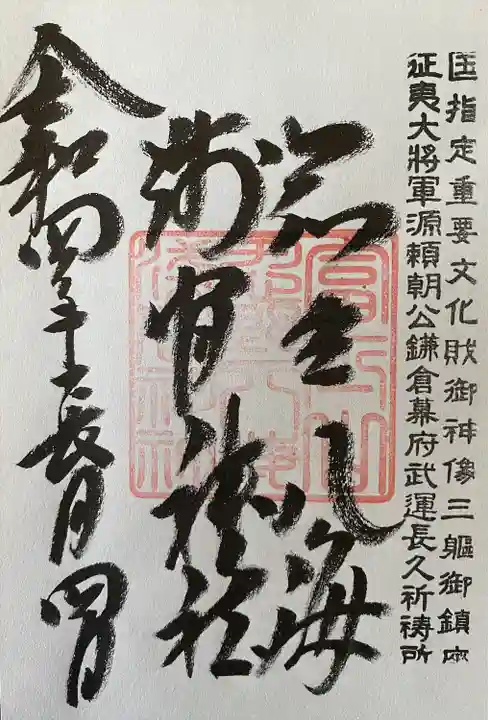 国指定重要文化財御神像三軀御鎮座
征夷大將軍源頼朝公鎌倉幕府武運長久祈祷所
忍野八海
浅間神社
令和四年長月四日